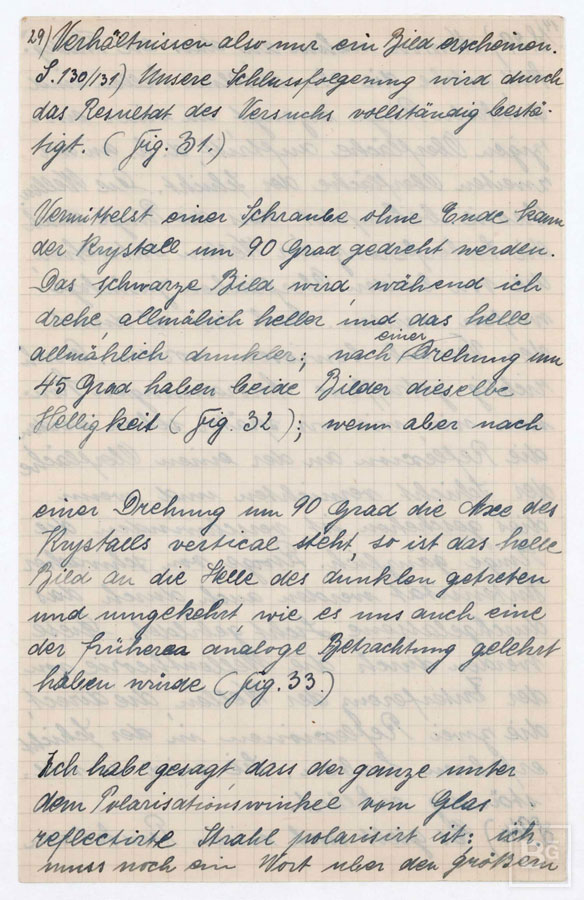 29) Verhältnissen also nur ein Bild erscheinen.
S. 130/131) Unsere Schlussfolgerung wird durch
das Resultat des Versuchs vollständig bestä-
tigt. (Fig. 31.)
Vermittelst einer Schraube ohne Ende kann
der Krystall um 90 Grad gedreht werden.
Das schwarze Bild wird, während ich
drehe, allmälich heller und das helle
allmählich dunkler; nach einer Drehung um
45 Grad haben beide Bilder dieselbe
Helligkeit (Fig. 32); wenn aber nach
einer Drehung um 90 Grad die Axe des
Krystalls vertical steht, so ist das helle
Bild an die Stelle des dunklen getreten
und umgekehrt, wie es uns auch eine
der früheren analoge Betrachtung gelehrt
haben würde (Fig. 33.)
Ich habe gesagt, dass der ganze unter
dem Polarisationswinkel vom Glas
reflectirte Strahl polarisirt ist; ich
muss noch ein Wort über den größern